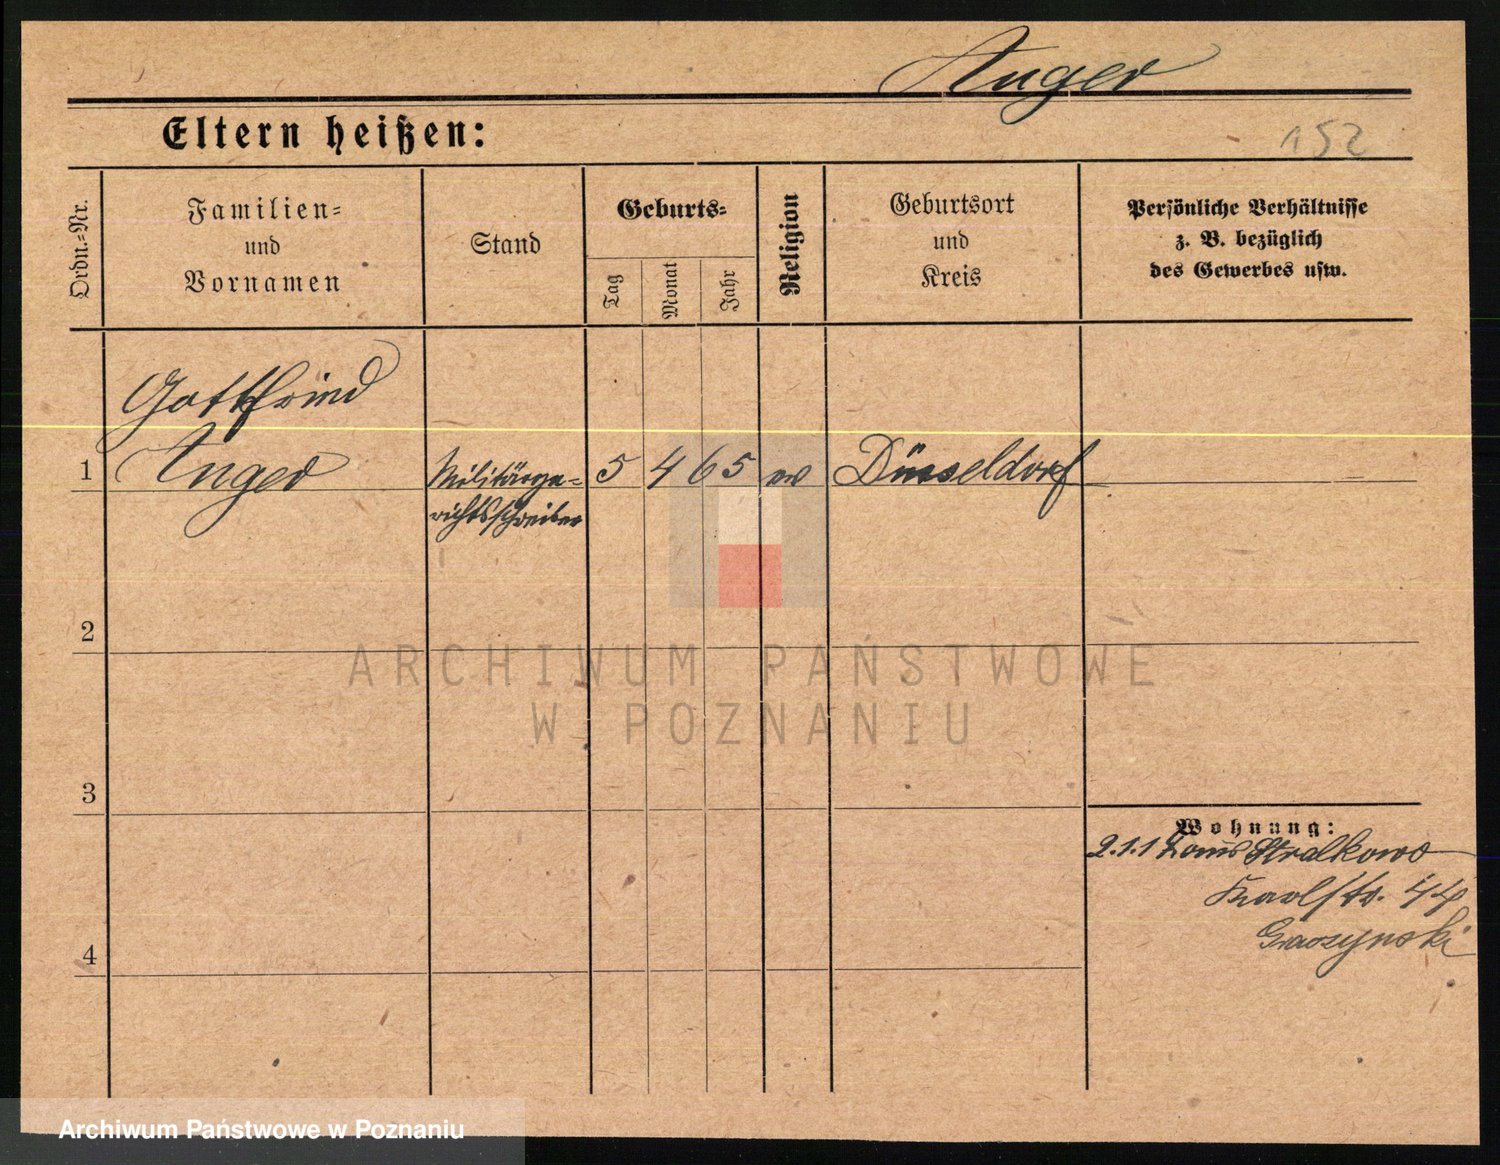 Anger
152
Eltern heißen:
Ordn.-Nr.
Familien-
und
Vornamen
Stand
Geburts-
Tag
Monat
Jahr
Religion
Geburtsort
und
Kreis
Persönliche Verhältnisse
z. B. bezüglich
des Gewerbes usw.
Gottfried
1 Anger Militärge- 5 4 65 ev Düsseldorf
richtsschreiber
2
3
4
Wohnung:
2.1.1 Stralkowo
Karlstr. 44
ARCHIWUM PAŃSTWOWE
W POZNANIU
Archiwum Państwowe w Poznaniu